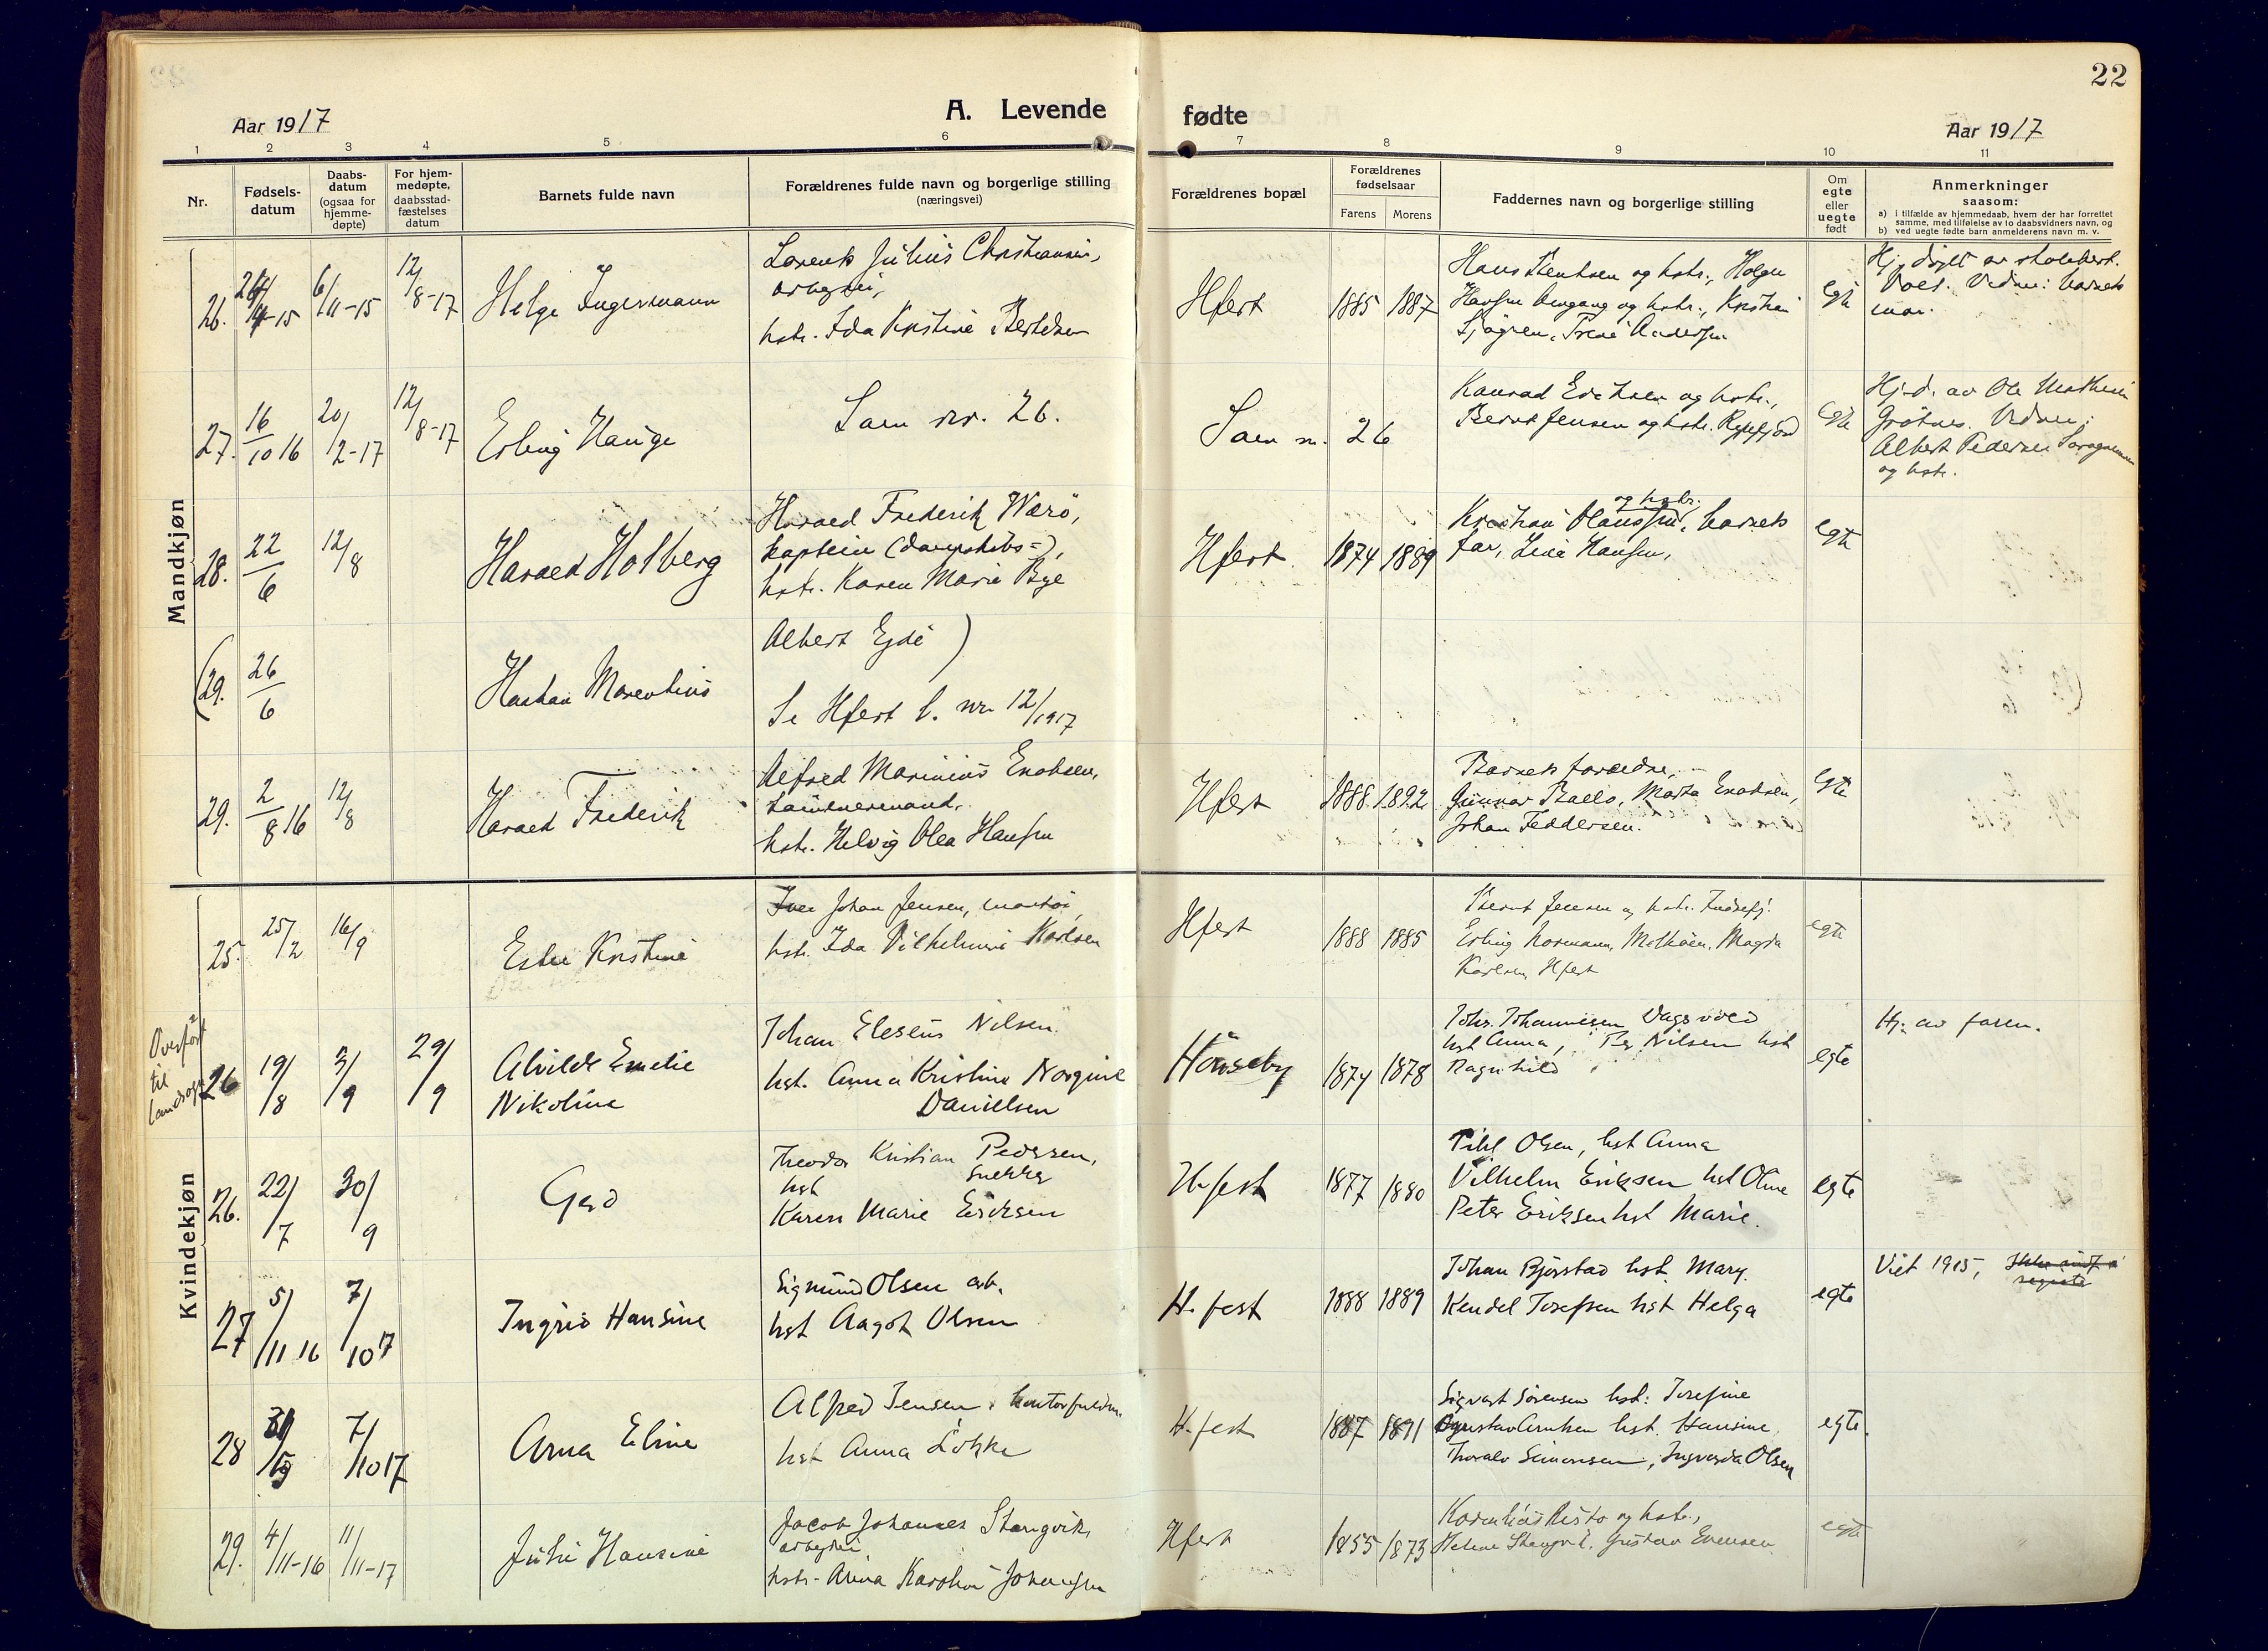 22
A. Levende fødte
Aar 1917
Aar 1917
1 2 3 4 5 6 7 8 9 10 11
Nr.
Fødsels-
datum
Daabs-
datum
(ogsaa for
hjemme-
døpte)
For hjem-
medøpte,
daabsstad-
fæstelses
datum
Barnets fulde navn
Forældrenes fulde navn og borgerlige stilling
(næringsvei)
Forældrenes bopæl
Forældrenes
fødselsaar
Farens Morens
Faddernes navn og borgerlige stilling
Om
egte
eller
uegte
født
Anmerkninger
saasom:
a) i tilfælde av hjemmedaab, hvem der har forrettet
samme, med tilføielse av to daabsvidners navn, og
b) ved uegte fødte barn anmelderens navn m. v.
Mandkjøn
26. 6/11-15 12/8-17
Helge Ingermann
Lorents Julius Christiansen,
arbeyder,
hstr. Ida Kristine Bertelsen
Hfest 1885 1887
Hans Bentsen og hstr., Helga
og hstr., Kristian
egte
27. 16/10 16 20/2-17 12/8-17
Erling Hauge
Som nr. 26.
Som nr. 26
Konrad og hstr.,
Bernt Jensen og hstr. Rypefjord
egte
Hj.-d. av Ole Mathesen
Grøtnes. Vidner:
Albert Pedersen
og hstr.
28. 22/6 12/8
Harald Holberg
Harald Frederik Werö,
kaptein (dampskibs-),
hstr. Karen Marie Bye
Hfest 1874 1889
og hstr.
Kristian Olaussen, barnets
far, Hansen,
egte
(29. 26/6
Marentius
Albert Ejde )
Se Hfest l. nr 12/1917
29. 2/8 16 12/8
Harald Frederik
Alfred Marinius Enoksen,
hstr. Helvig Olea Hansen
Hfest 1888 1892
Barnets forældre,
Gunnar Ballo, Marta Enoksen,
Johan Feddersen.
egte
Kvindekjøn
25. 25/2 16/9
Ester Kristine
Iver Johan Jensen, montör,
hstr. Ida Vilhelmine Karlsen
Hfest 1888 1885
Bernt Jensen og hstr.
Erling Normann, Melkøen, Magda
Karlsen, Hfest
egte
Overført
til
landsogn
26 19/8 3/9 29/9
Alvilde Emelie
Nikoline
Johan Eleseus Nilsen
hst. Anna Kristine Norgine
Danielsen
Hönseby 1874 1878
Johs. Johannesen Vagsvold
hst Anna, Per Nilsen hst
Ragnhild
egte
Hj. av faren.
26. 22/7 30/9
Gerd
Theodor Kristian Pedersen,
snekker
hst
Karen Marie Eriksen
H.fest 1877 1880
Pihl Olsen, hst Anna
Vilhelm Eriksen hst Oline
Peter Eriksen hst Marie.
egte
27 5/11 16 7/10 17
Ingrid Hansine
Sigmund Olsen arb.
hst Aagot Olsen
H.fest 1888 1889
Johan Bjørstad hst Mary.
Kendel Josefsen hst Helga
egte
Viet 1915,
28 7/10 17
Arna Eline
Alfred Jensen, kontorfuldm.
hst Anna Løkke
H.fest 1887 1891
Sigvart Sørensen hst: Josefine
hst. Hansine,
Thoralv Simonsen, Ingvarda Olsen
egte.
29. 4/11-16 11/11-17
Julie Hansine
Jacob Johannes Stangvik,
arbeyder
hstr. Anna Karoline Johansen
Hfest 1855 1873
Kornelius Risto og hstr.,
Helene Stangvik, Gustav Evensen
egte